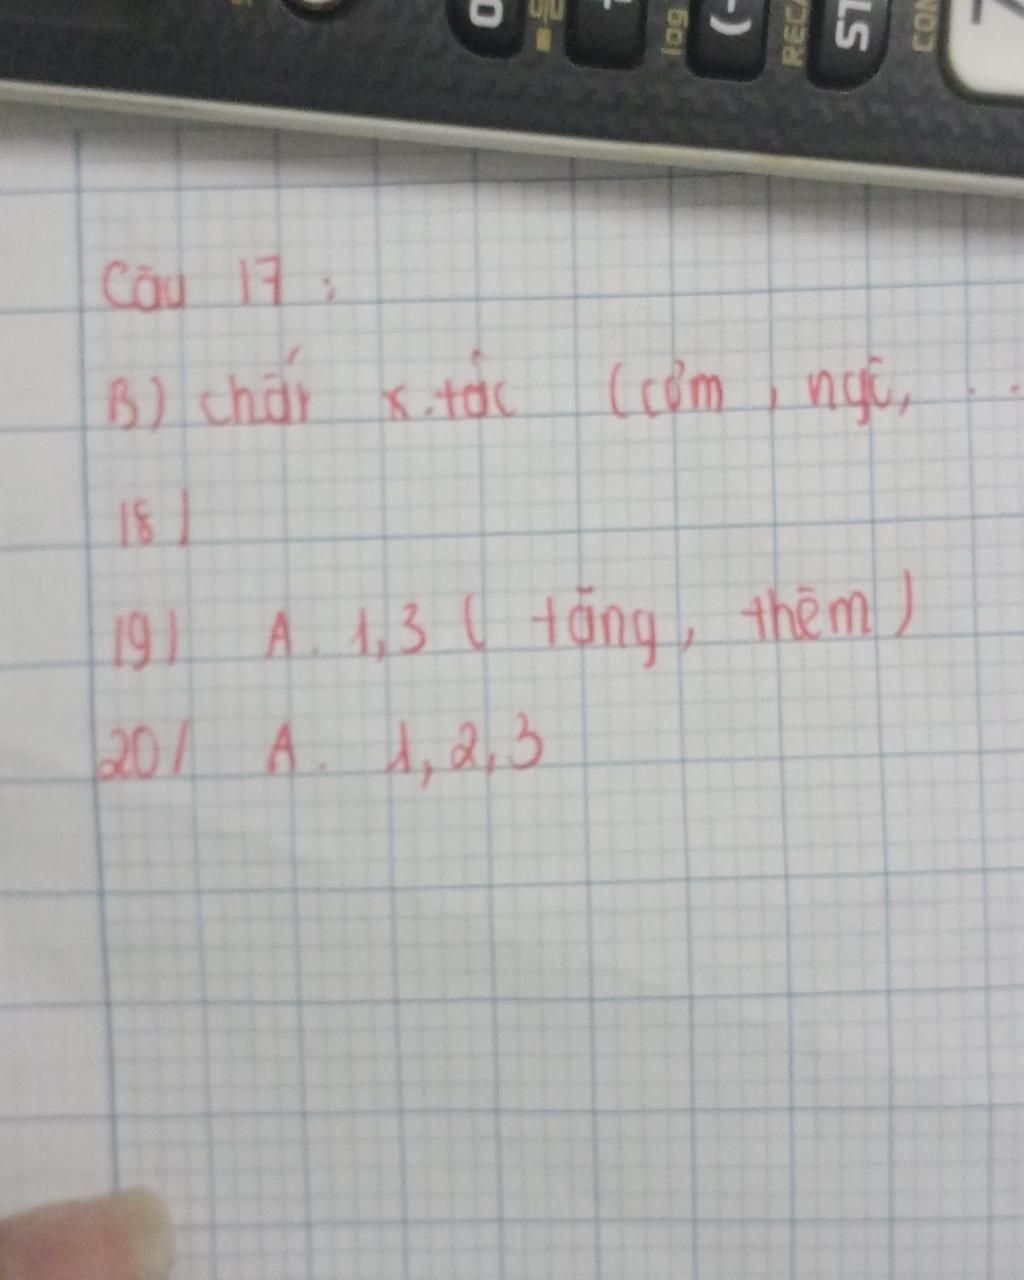 0
log
(-)
RECA
ST
CON
7
Câu 17 :
B) chất x.tác (cơm , ngô, ...
18)
19) A. 1,3 ( tăng, thêm )
20) A. 1,2,3